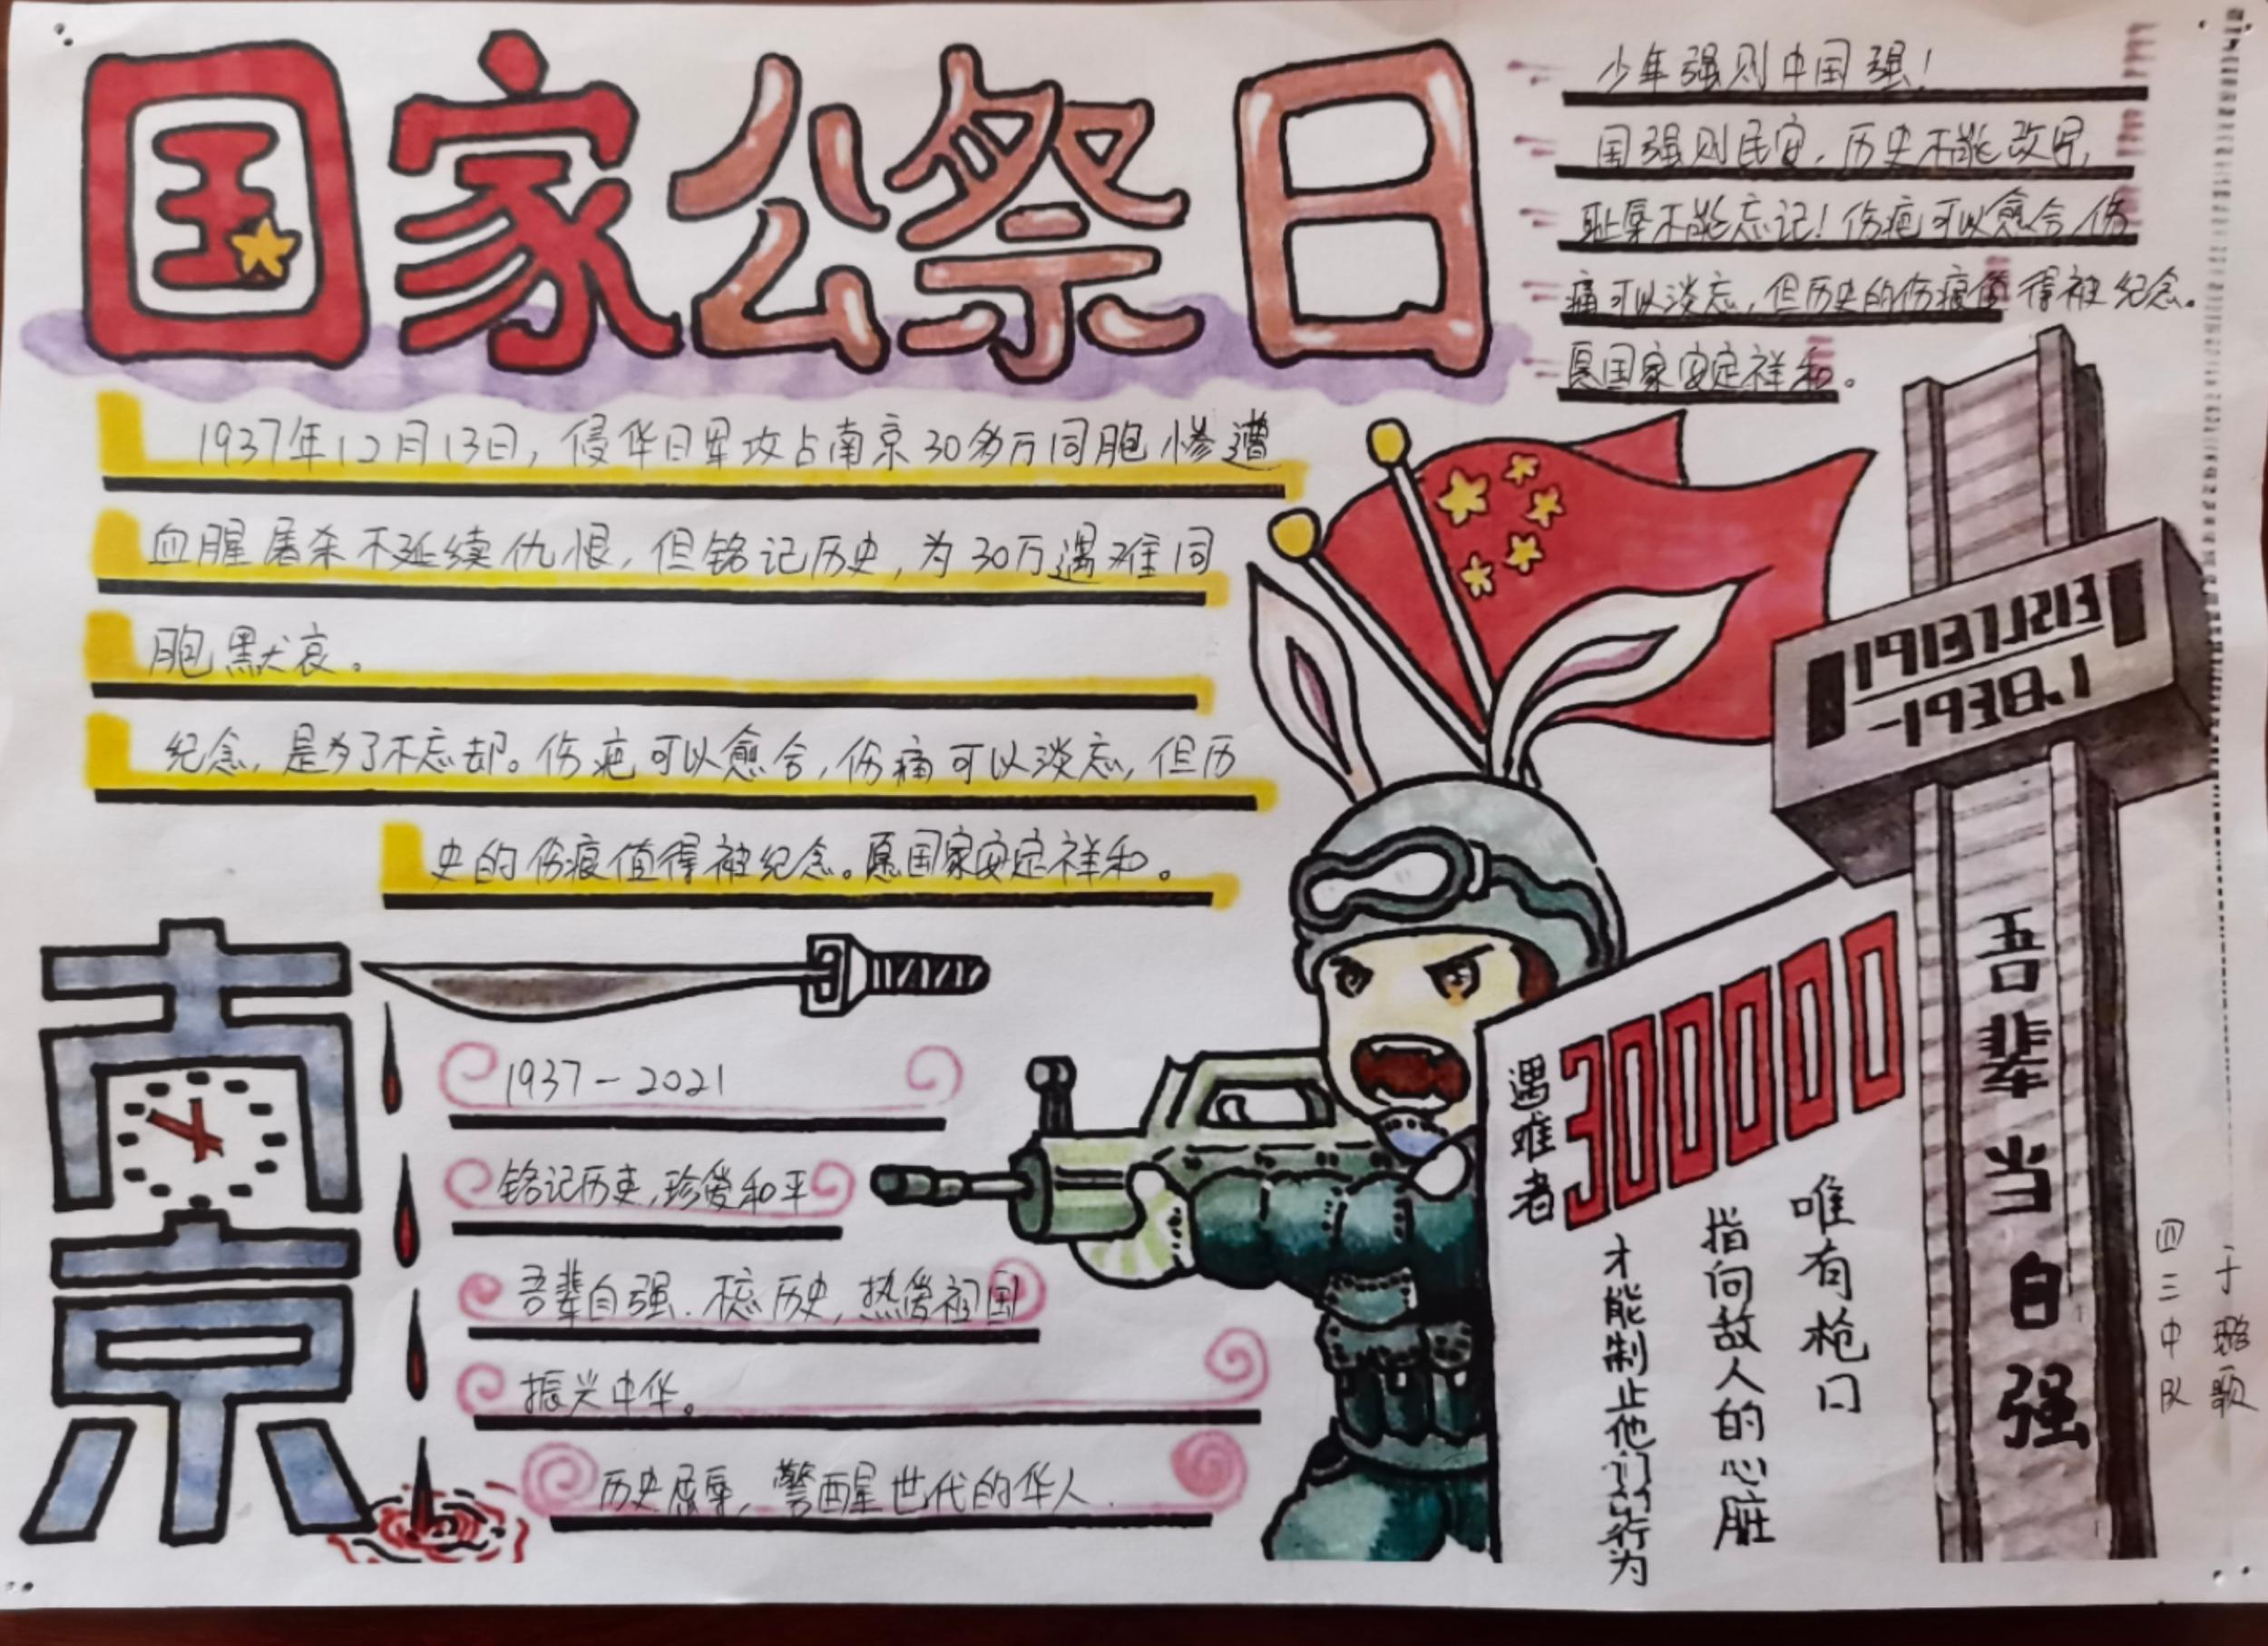 国家公祭日
少年强则中国强!
国强则民安,历史不能改写,
耻辱不能忘记!伤疤可以愈合,伤
痛可以淡忘,但历史的伤痕值得被纪念。
愿国家安定祥和。
1937年12月13日,侵华日军攻占南京30多万同胞惨遭
血腥屠杀不延续仇恨,但铭记历史,为30万遇难同
胞默哀。
纪念,是为了不忘却。伤疤可以愈合,伤痛可以淡忘,但历
史的伤痕值得被纪念。愿国家安定祥和。
南京
1937-2021
铭记历史,珍爱和平
吾辈自强.历史,热爱祖国
振兴中华。
历史屈辱,警醒世代的华人.
-1938.1
吾辈当自强
遇难者
300000
唯有枪口
指向敌人的心脏
才能制止他们的行为
四三中队
于璐歌